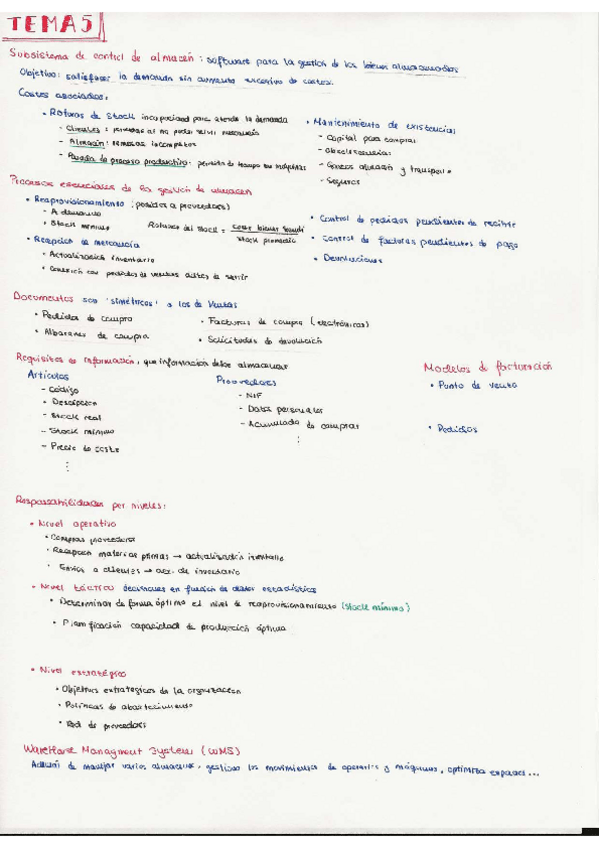 TEMA 5
Subsistema de control de almacén: software para la gestión de los bienes almacenados
Objetivo: satisfacer la demanda sin aumento excesivo de costes.
Costes asociados:
• Roturas de stock incapacidad para atender la demanda
- Clientes: perdidas al no poder servir mercancía
- Almacén: remesas incompletas
- Parada de proceso productivo: perdida de tiempo en máquinas
• Mantenimiento de existencias
- Capital para comprar
- Obsolescencia
- Gastos almacén y transporte
- Seguros
Procesos esenciales de la gestión de almacén
• Reaprovisionamiento (pedidos a proveedores)
- A demanda
- Stock mínimo
Rotación del stock = coste bienes vendi / stock promedio
• Recepción de mercancía
• Actualización inventario
• Conexión con pedidos de ventas antes de servir
• Control de pedidos pendientes de recibir
• Control de facturas pendientes de pago
• Devoluciones
Documentos son 'simétricos' a los de Ventas
• Pedidos de compra
• Albaranes de compra
• Facturas de compra (electrónicas)
• Solicitudes de devolución
Requisitos de información, que información debe almacenar
Artículos
- Código
• Descripción
- Stock real
- Stock mínimo
- Precio de coste
⋮
Proveedores
- NIF
- Datos personales
- Acumulado de compras
⋮
Modelos de facturación
• Punto de venta
• Pedidos
Responsabilidades por niveles:
• Nivel operativo
• Compras proveedores
• Recepción materias primas → actualización inventario
• Envíos a clientes → act. de inventario
• Nivel táctico decisiones en función de datos estadísticos
• Determinar de forma óptima el nivel de reaprovisionamiento (stock mínimo)
• Planificación capacidad de producción óptima
• Nivel estratégico
• Objetivos estratégicos de la organización
• Políticas de abastecimiento
• Red de proveedores
Warehouse Managment System (WMS)
Además de manejar varios almacenes, gestiona los movimientos de operarios y máquinas, optimiza espacios...